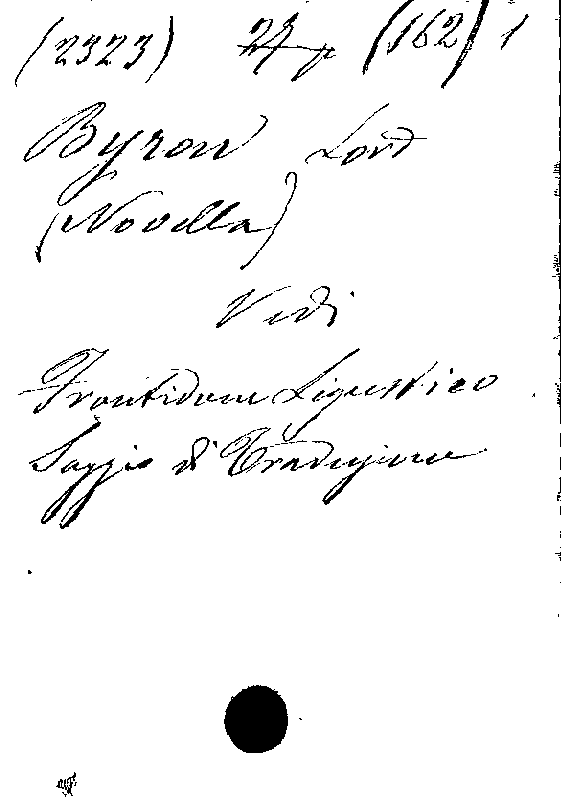 (2323) 24 (162) 1
Byron Lord
(Novella)
Vedi
Ligustico
Saggio di Traduzione